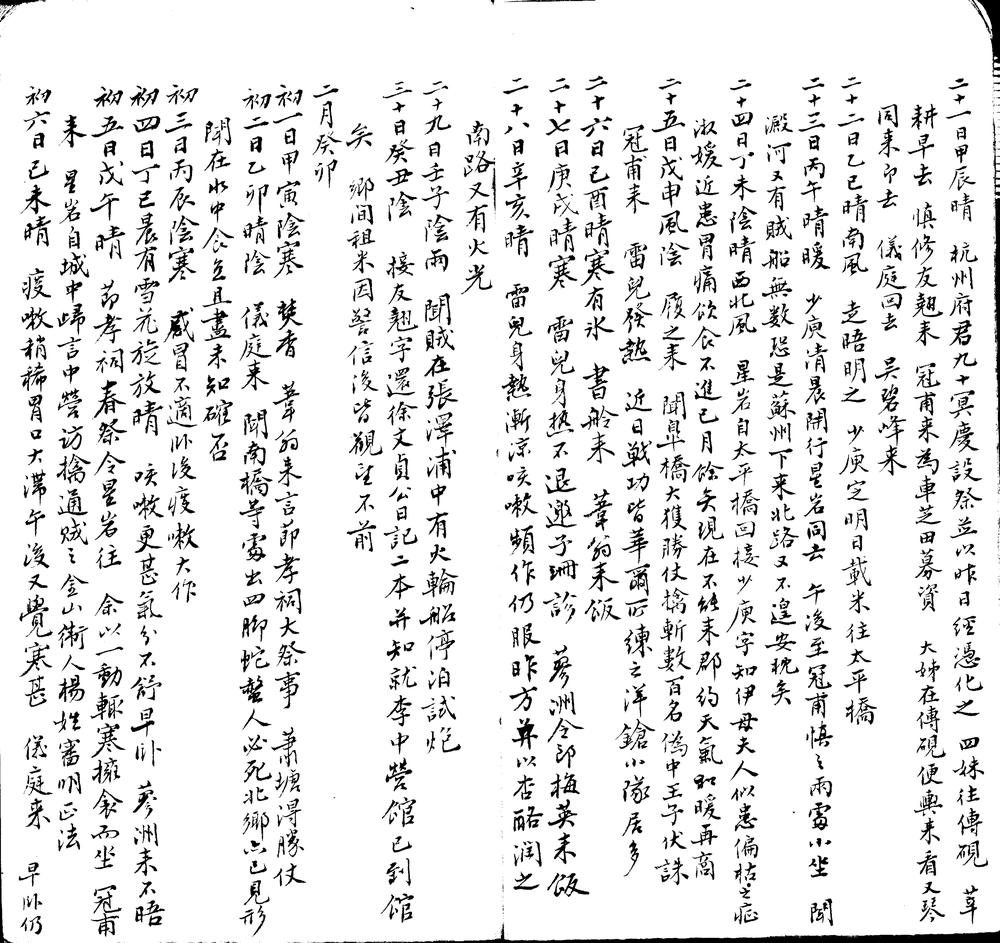 二十一日甲辰晴 杭州府君九十冥慶設祭並以昨日經憑化之 四妹往傳硯 草
耕早去 慎修友翘来 冠甫来為車芝田募資 大姊在傳硯便輿来看又琴
同来即去 儀庭回去 吴碧峰来
二十二日乙巳晴南風 走晤明之 少庚定明日載米往太平橋
二十三日丙午晴暖 少庚清晨開行星岩同去 午後至冠甫慎之兩處小坐 聞
澱河又有賊船無数恐是蘇州下来北路又不遑安枕矣
二十四日丁未陰晴西北風 星岩自太平橋回接少庚字知伊母夫人似患偏枯之症
淑媛近患胃痛飲食不進已月餘矣現在不能来郡約天氣和暖再商
二十五日戊申風陰 履之来 聞阜橋大獲勝仗擒斬数百名偽中王子伏誅
冠甫来 雷兒發熱 近日戰功皆華爾所練之洋鎗小隊居多
二十六日己酉晴寒有氷 書舲来 葦翁来飯
二十七日庚戌晴寒 雷兒身热不退邀子珊診 蓼洲令郎梅英来飯
二十八日辛亥晴 雷兒身熱漸涼咳嗽頻作仍服昨方並以杏酪潤之
南路又有火光
二十九日壬子陰雨 聞賊在張澤浦中有火輪船停泊試炮
三十日癸丑陰 接友翘字還徐文貞公日記二本并知就李中營館已到館
矣 鄉間祖米因警信後皆觀望不前
二月癸卯
初一日甲寅陰寒 焚香 葦翁来言節孝祠大祭事 蕭塘得勝仗
初二日乙卯晴陰 儀庭来 聞南橋等處出四脚蛇螫人必死北鄉亦已見形
聞在水中食魚且盡未知確否
初三日丙辰陰寒 感冒不適卧後痰嗽大作
初四日丁巳晨有雪花旋放晴 咳嗽更甚氣分不舒早卧 蓼洲来不晤
初五日戊午晴 節孝祠春祭令星岩往 余以一動輒寒擁衾而坐 冠甫
来 星岩自城中歸言中營访擒通贼之金山衛人楊姓審明正法
初六日己未晴 痰嗽稍稀胃口大滯午後又覺寒甚 儀庭来 早卧仍